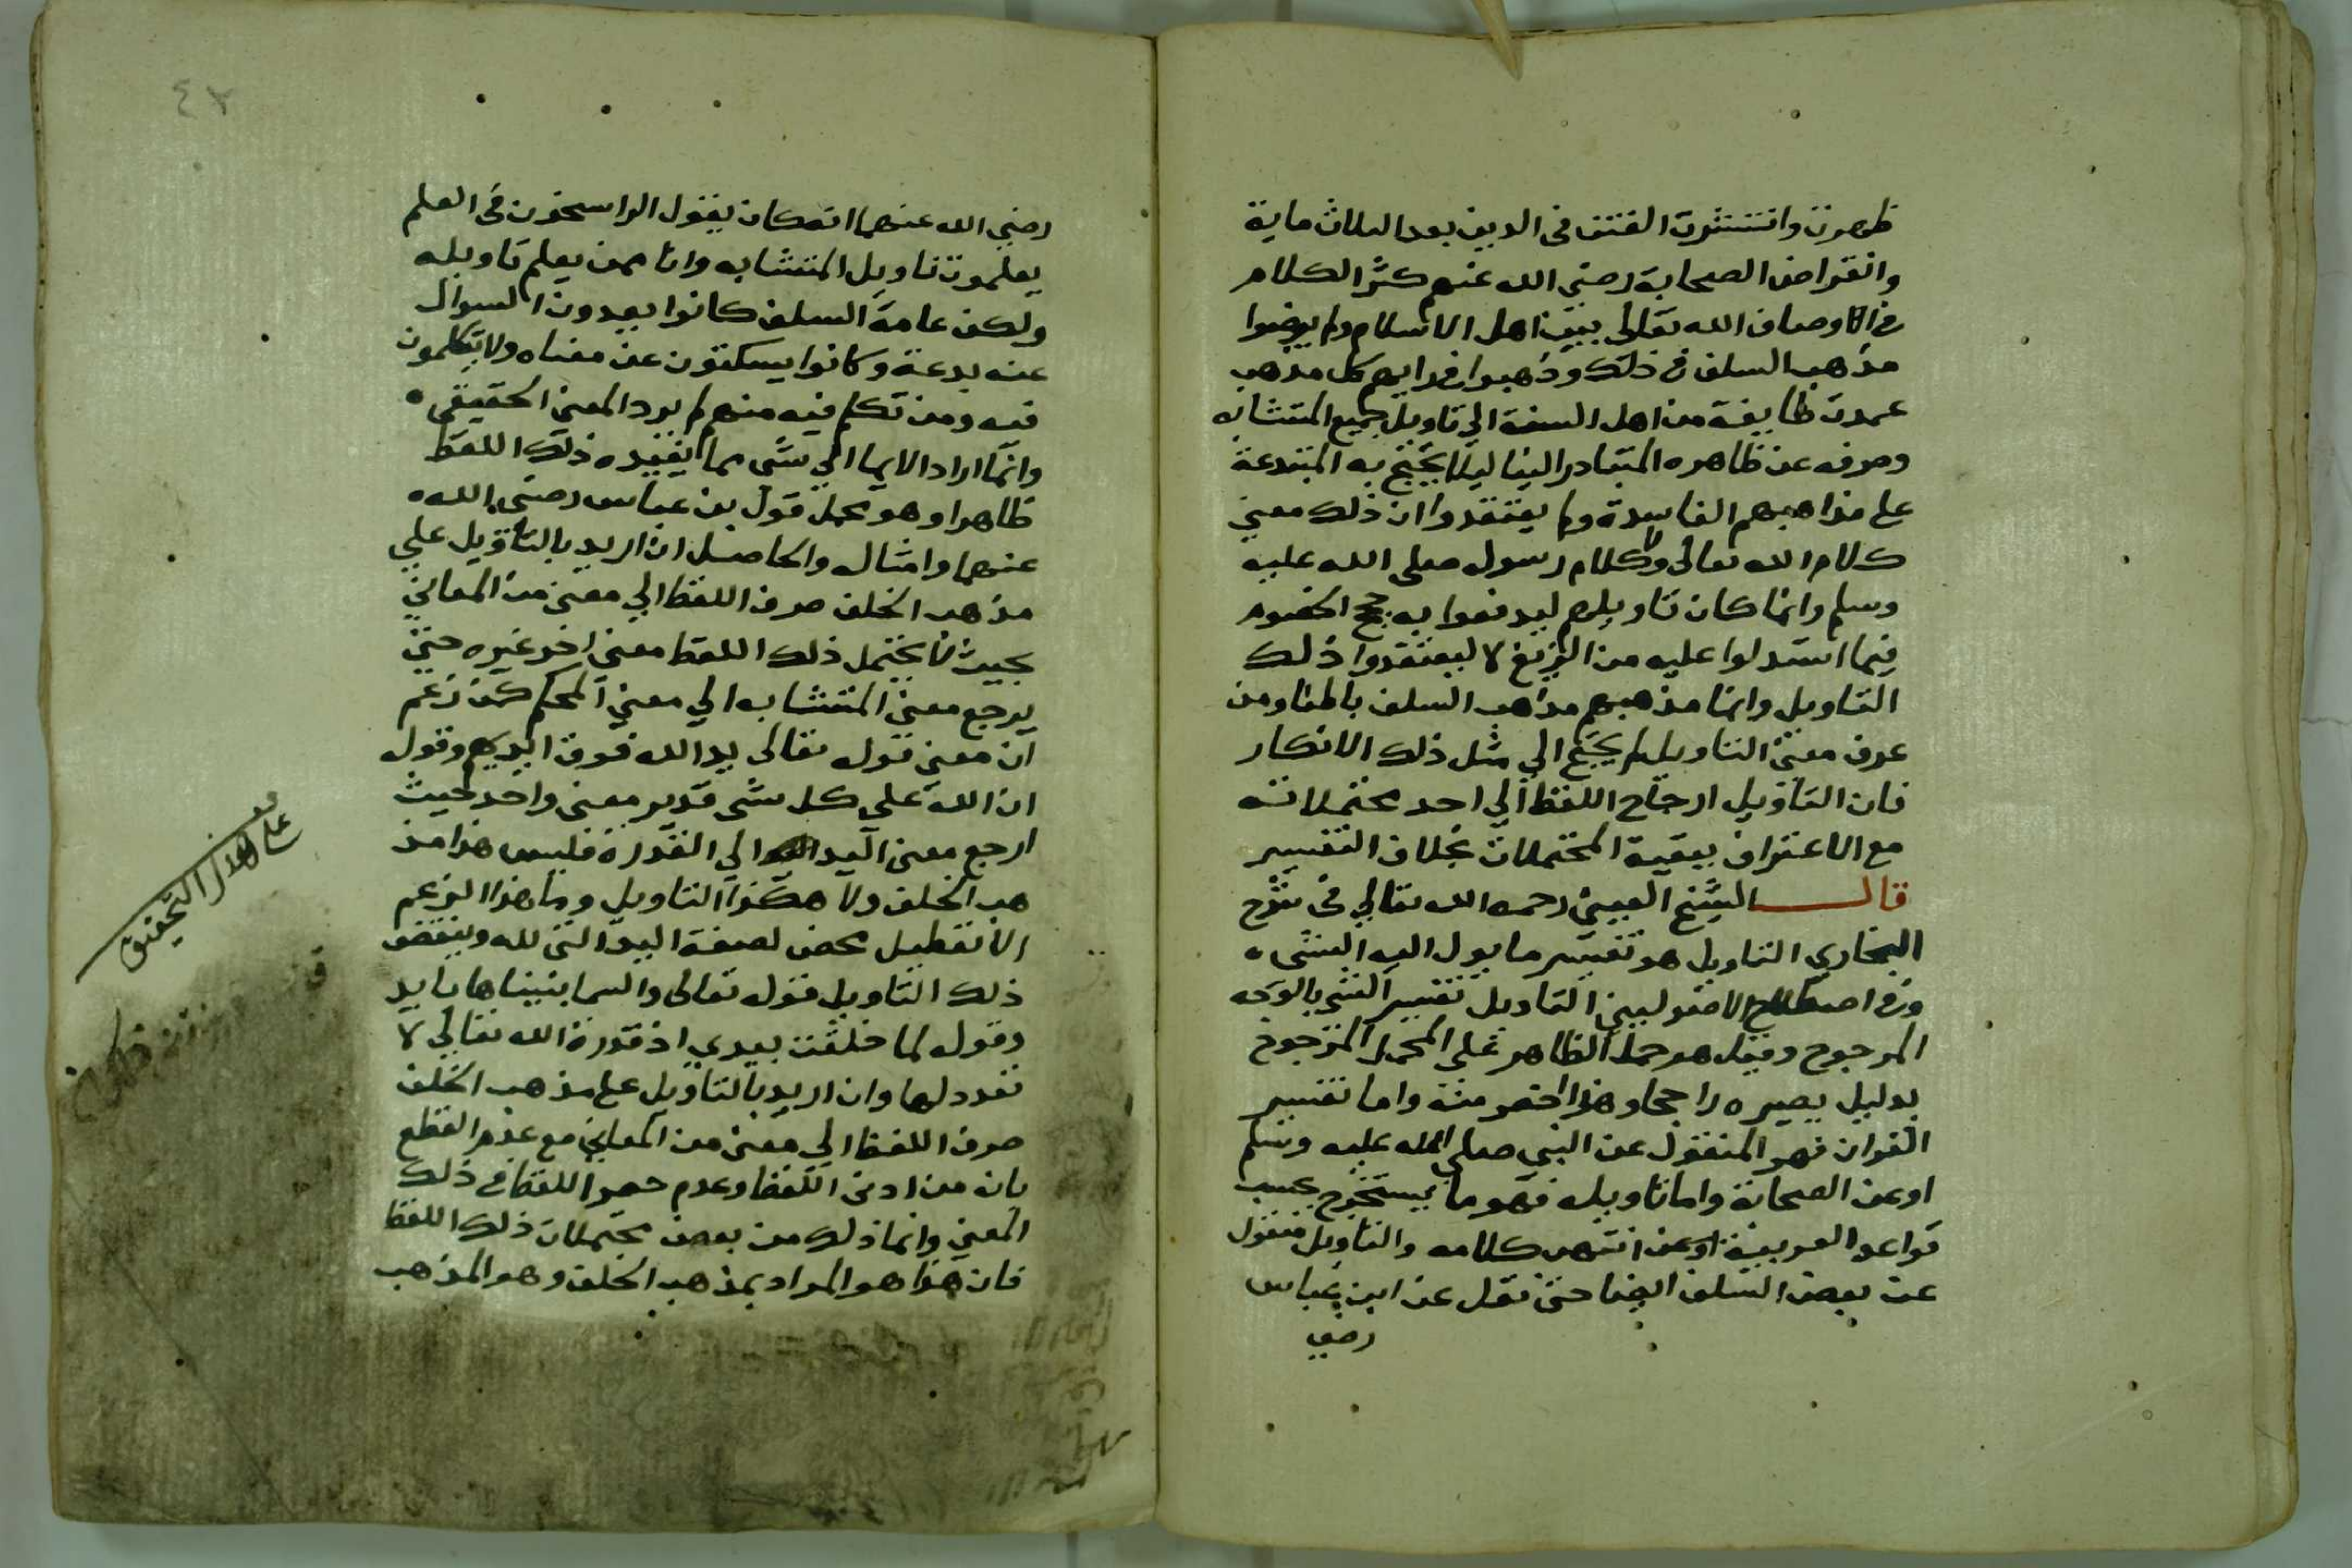 ظهرت وانتشرت الفتن في الدين بعد الثلاث ماية
وانقراض الصحابة رضي الله عنهم كثر الكلام
في اوصاف الله تعالى بين اهل الاسلام ولم يرضوا
مذهب السلف في ذلك وذهبوا في رايهم كل مذهب
عمدت طايفة من اهل السنة الي تاويل جميع المتشابه
وصرفه عن ظاهره المتبادر الينا ليلا يحتج به المبتدعة
على مذاهبهم الفاسدة ولم يعتقدوا ان ذلك معني
كلام الله تعالى ولا كلام رسوله صلى الله عليه
وسلم وانما كان تاويلهم ليدفعوا به حجج الخصوم
فيما استدلوا عليه من الزيغ لا ليعتقدوا ذلك
التاويل وانما مذهبهم مذهب السلف باطنا ومن
عرف معنى التاويل لم يحتج الي مثل ذلك الانكار
فان التاويل ارجاح اللفظ الي احد محتملاته
مع الاعتراف ببقية المحتملات بخلاف التفسير
قال الشيخ العيني رحمه الله تعالي في شرح
البخاري التاويل هو تفسير ما يول اليه الشى
وفي اصطلاح الاصوليين التاويل تفسير الشى بالوجه
المرجوح وقيل هو حمل الظاهر على المحمل المرجوح
بدليل يصيره راجحا وهذا اخص منه واما تفسير
القران فهو المنقول عن النبي صلي الله عليه وسلم
او عن الصحابة واما تاويله فهو ما يستخرج بحسب
قواعد العربية انتهى كلامه والتاويل منقول
عن بعض السلف ايضا حتى نقل عن ابن عباس
رضي
٤٢
رضي الله عنهما انه كان يقول الراسخون في العلم
يعلمون تاويل المتشابه وانا ممن يعلم تاويله
ولكن عامة السلف كانوا يعدون السوال
عنه بدعة وكانوا يسكتون عن معناه ولا يتكلمون
فيه ومن تكلم فيه منهم لم يرد المعنى الحقيقي
وانما اراد الايما الي شى مما يفيده ذلك اللفظ
ظاهرا وهو محمل قول بن عباس رضي الله
عنهما وامثاله والحاصل ان اريد بالتاويل علي
مذهب الخلف صرف اللفظ الي معنى من المعاني
بحيث لا يحتمل ذلك اللفظ معنى اخر غيره حتى
يرجع معنى المتشابه الي معني المحكم كمن زعم
ان معنى قوله تعالى يد الله فوق ايديهم وقوله
ان الله علي كل شى قدير معنى واحد بحيث
ارجع معنى اليد الي القدرة فليس هذا مذ
هب الخلف ولا هكذا التاويل وما هذا الزعم
الا تعطيل محض لصفة اليد التى لله وينقض
ذلك التاويل قوله تعالى والسما بنيناها بايد
وقوله لما خلقت بيدي اذ قدرة الله تعالي لا
تعدد لها وان اريد بالتاويل على مذهب الخلف
صرف اللفظ الي معنى من المعاني مع عدم القطع
بان من ادى اللفظ وعدم حصر اللفظ في ذلك
المعني وانما ذلك من بعض محتملات ذلك اللفظ
فان هذا هو المراد بمذهب الخلف وهو المذهب
على هذا التحقيق